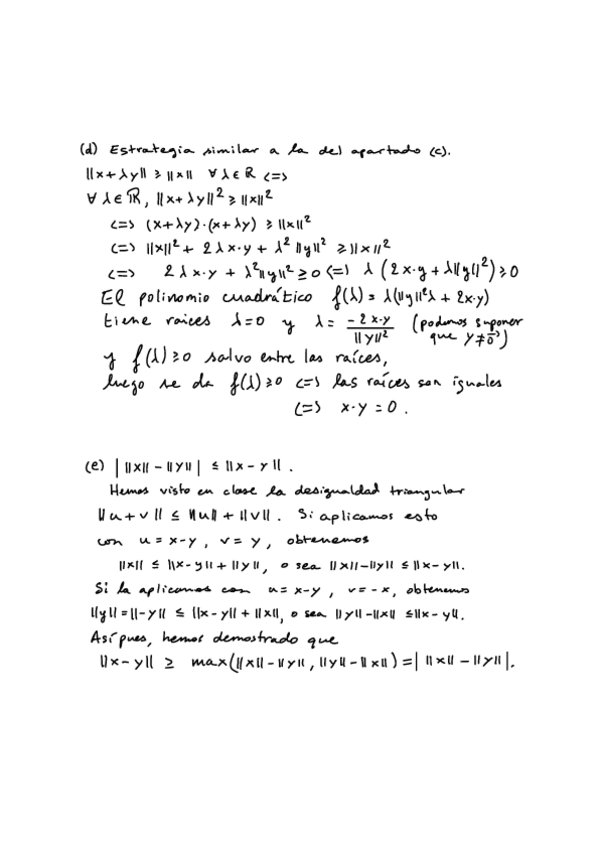 (d) Estrategia similar a la del apartado (c).
||x+λy|| ≥ ||x|| ∀ λ∈ℝ <=>
∀ λ∈ℝ, ||x+λy||² ≥ ||x||²
<=> (x+λy)·(x+λy) ≥ ||x||²
<=> ||x||² + 2λx·y + λ²||y||² ≥ ||x||²
<=> 2λx·y + λ²||y||² ≥ 0 <=> λ(2x·y + λ||y||²) ≥ 0
El polinomio cuadrático f(λ) = λ(||y||²λ + 2x·y)
tiene raíces λ=0 y λ = -2x·y / ||y||² (podemos suponer que y≠0⃗)
y f(λ) ≥ 0 salvo entre las raíces,
luego se da f(λ) ≥ 0 <=> las raíces son iguales
<=> x·y = 0.
(e) | ||x|| - ||y|| | ≤ ||x-y||.
Hemos visto en clase la desigualdad triangular
||u+v|| ≤ ||u|| + ||v||. Si aplicamos esto
con u = x-y, v = y, obtenemos
||x|| ≤ ||x-y|| + ||y||, o sea ||x|| - ||y|| ≤ ||x-y||.
Si la aplicamos con u = x-y, v = -x, obtenemos
||y|| = ||-y|| ≤ ||x-y|| + ||x||, o sea ||y|| - ||x|| ≤ ||x-y||.
Así pues, hemos demostrado que
||x-y|| ≥ max(||x|| - ||y||, ||y|| - ||x||) = | ||x|| - ||y|| |.